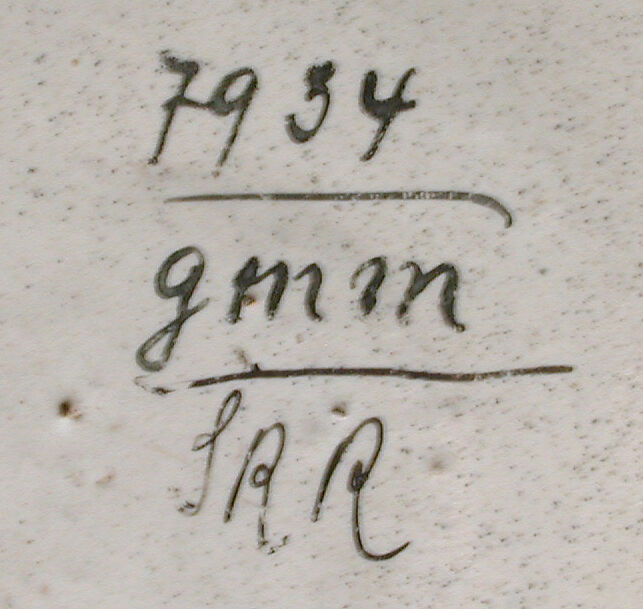 7934
gmm
SRR